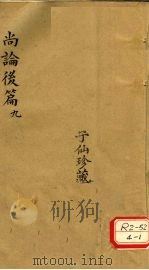 尚論後篇 九
子仙珍藏
R2-52
4-1
www.duxiu.com